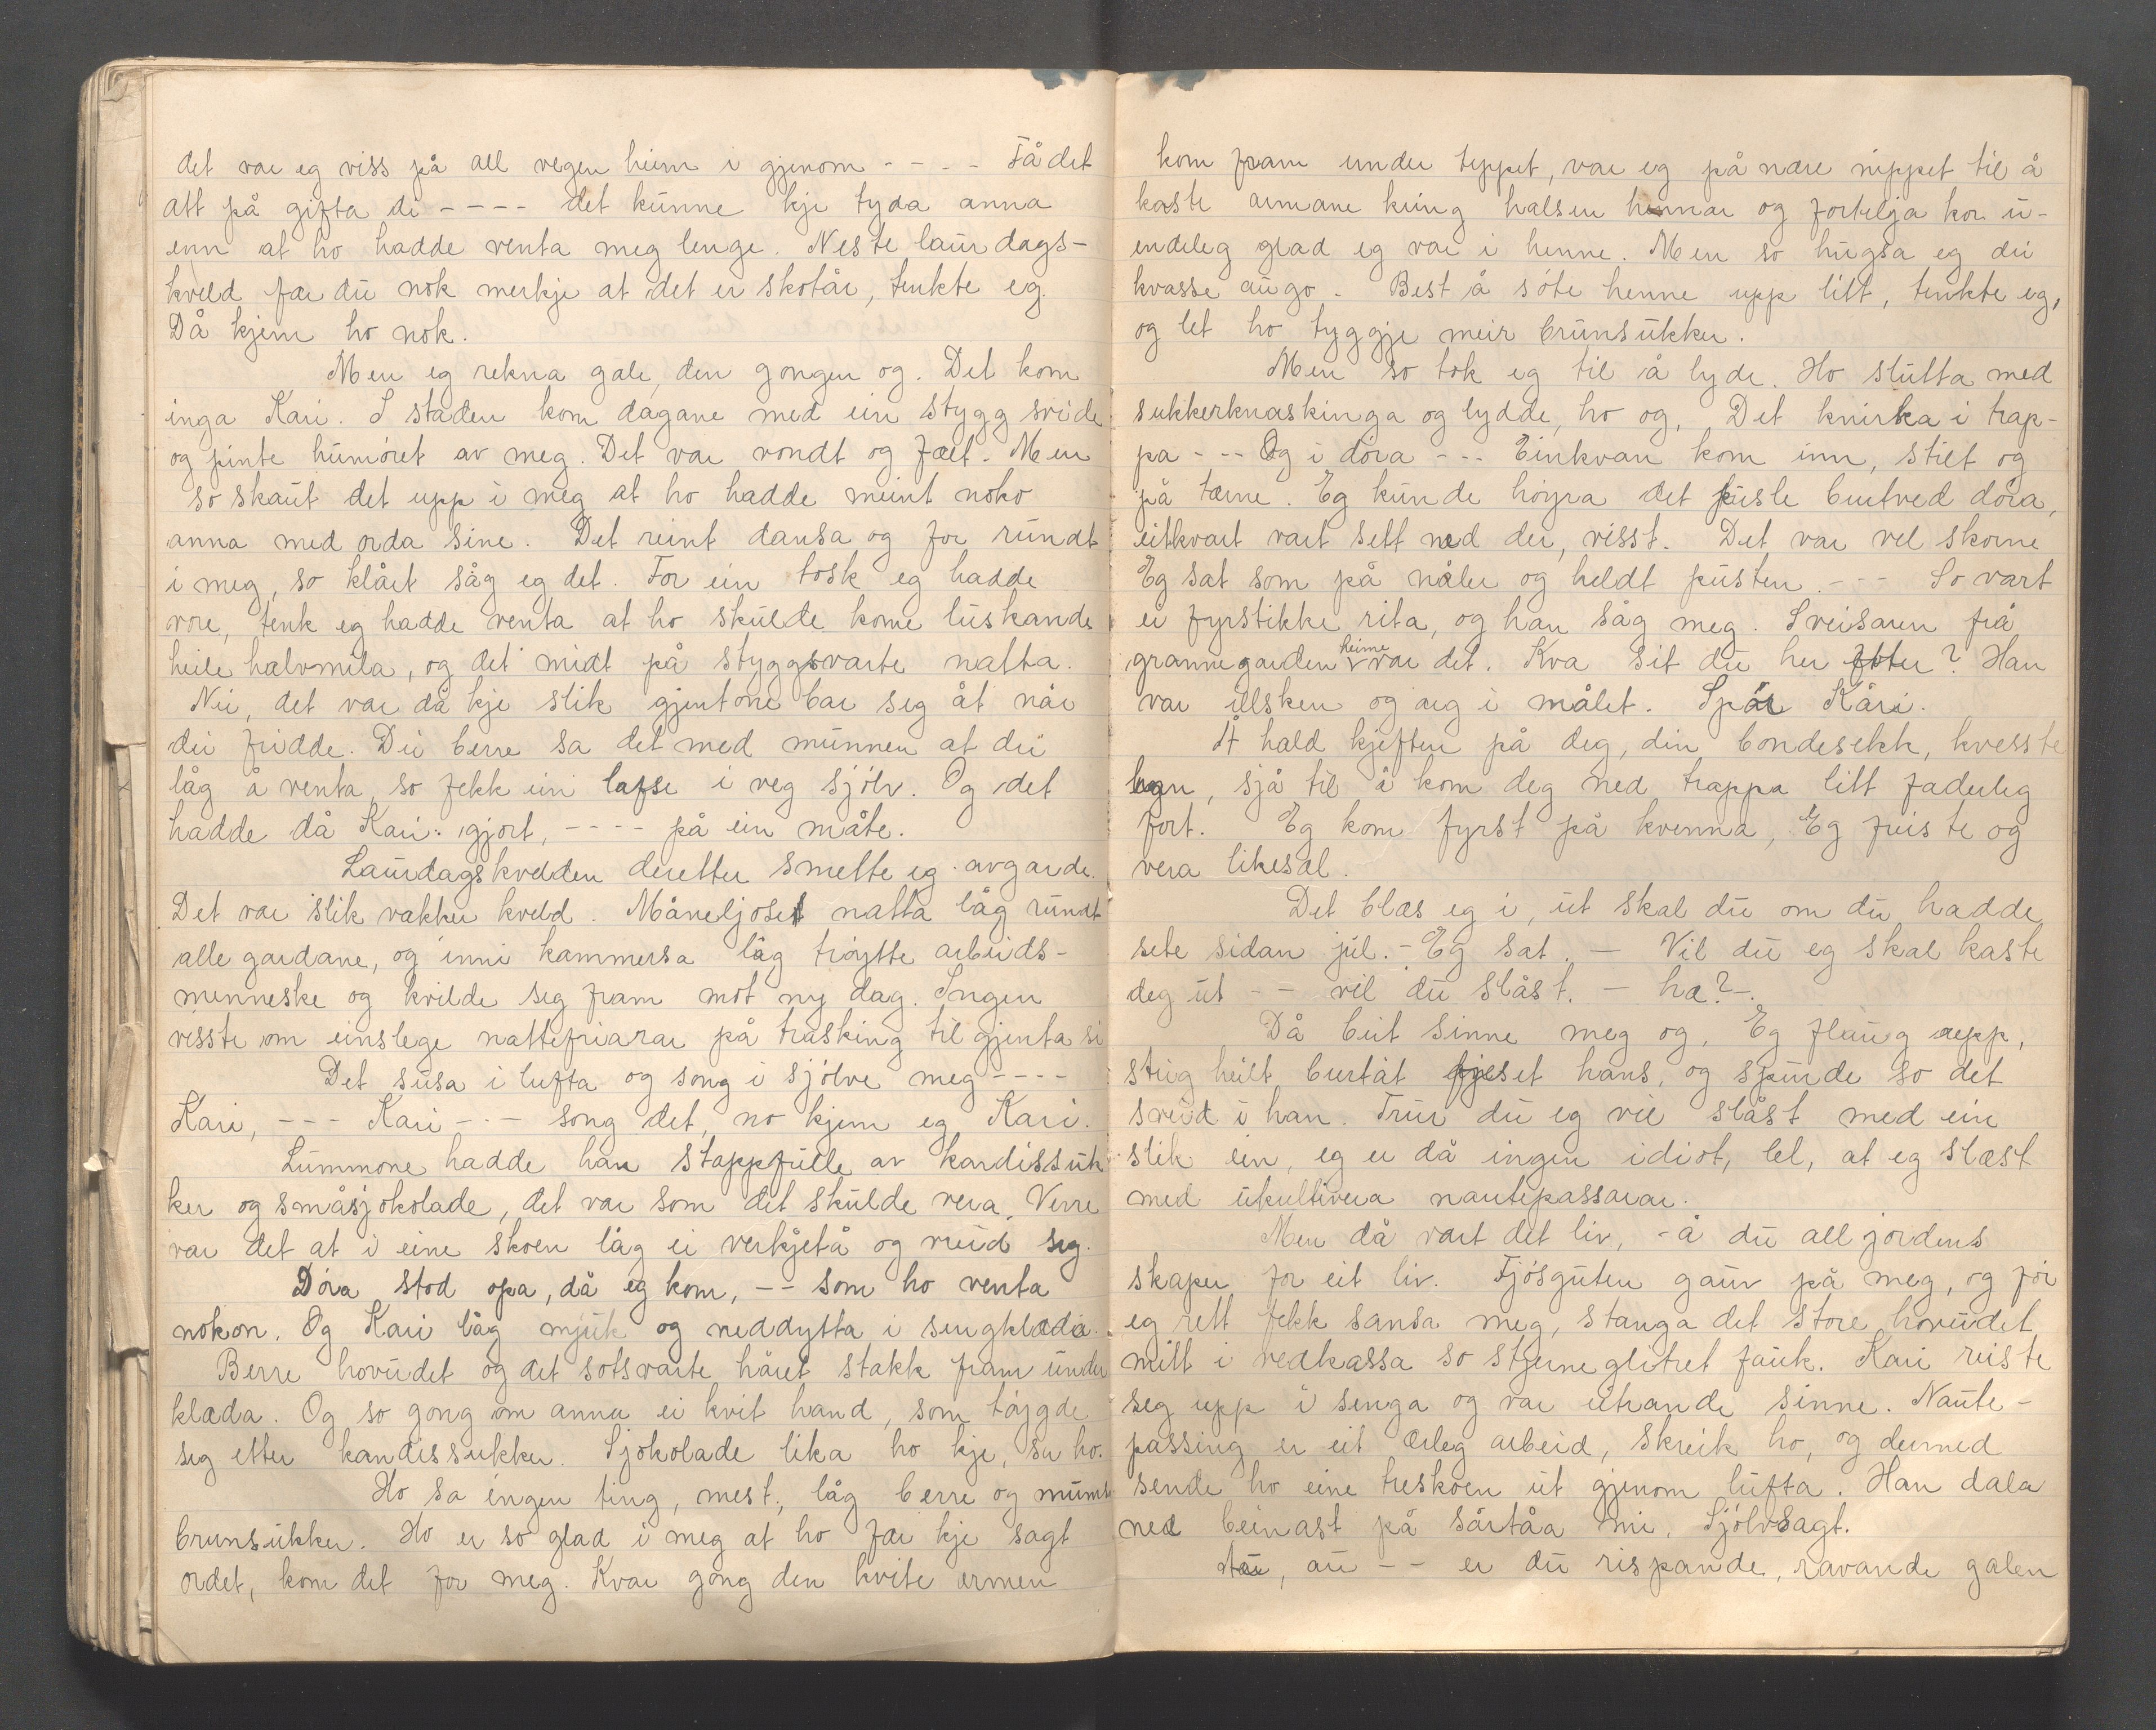 det var eg viss på all vegen heim i gjenom - - - - Få det
att på gifta di - - - - det kunne kje tyda anna
enn at ho hadde venta meg lenge. Neste laurdags-
kveld får du nok merkje at det er skotår, tenkte eg.
Då kjem ho nok.
Men eg rekna gale, den gongen og. Det kom
inga Kari. I staden kom dagane med ein stygg svide
og pinte humöret av meg. Det var vondt og fælt. Men
so skaut det upp i meg at ho hadde meint noko
anna med orda sine. Det reint dansa og for rundt
i meg, so klårt såg eg det. For ein tosk eg hadde
vore, tenk eg hadde venta at ho skulde kome luskande
heile halvmila, og det midt på styggsvarte natta.
Nei, det var då kje slik gjentone bar seg åt når
dei fridde. Dei berre sa det med munnen at dei
låg å venta, so fekk ein lafse i veg sjölv. Og det
hadde då Kari gjort, - - - - på ein måte.
Laurdagskvelden deretter smette eg avgarde.
Det var slik vakker kveld. Måneljoset natta låg rundt
alle gardane, og inni kammersa låg tröytte arbeids-
menneske og kvilde seg fram mot ny dag. Ingen
visste om einslege nattefriarar på trasking til gjenta si
Det susa i lufta og song i sjölve meg - - - -
Kari, - - - Kari - - - song det, no kjem eg Kari.
Lummone hadde han stappfulle av kandissuk
ker og småsjokolade, det var som det skulde vera. Verre
var det at i eine skoen låg ei verkjetå og vreid seg.
Döra stod opa, då eg kom, - - som ho venta
nokon. Og Kari låg mjuk og neddytta i sengklæda.
Berre hovudet og det sotsvarte håret stakk fram under
klæda. Og so gong om anna ei kvit hand, som töygde
seg etter kandissukker. Sjokolade lika ho kje, sa ho.
Ho sa ingen ting, mest, låg berre og mumla
brunsukker. Ho er so glad i meg at ho får kje sagt
ordet, kom det for meg. Kvar gong den kvite armen
kom fram under teppet, var eg på nære nippet til å
kaste armane kring halsen hennar og fortelja kor u-
endeleg glad eg var i henne. Men so hugsa eg dei
kvasse augo. Best å söte henne upp litt, tenkte eg,
og let ho tyggje meir brunsukker.
Men so tok eg til å lyde. Ho slutta med
sukkerknaskinga og lydde, ho og. Det knirka i trap-
pa - - - Og i döra - - - Einkvan kom inn, stilt og
på tærne. Eg kunde höyra det pusle burtved döra,
eitkvart vart sett ned der, visst. Det var vel skorne
Eg sat som på nåler og heldt pusten. - - - So vart
ei fyrstikke rita, og han såg meg. Sveisaren frå
grannegarden heime var det. Kva sit du her etter? Han
var illsken og arg i målet. Spör Kari.
Å hald kjeften på deg, din bondesekk, kvesste
han, sjå til å kom deg ned trappa litt faderleg
fort. Eg kom fyrst på kvenna, Eg freiste og
vera likesæl.
Det blæs eg i, ut skal du om du hadde
sete sidan jul. - Eg sat. - Vil du eg skal kaste
deg ut - - vil du slåst. - hæ? -.
Då beit sinne meg og. Eg flaug upp,
steig heilt burtåt fjeset hans, og spurde so det
sveid i han. Trur du eg vil slåst med ein
slik ein, eg er då ingen idiot, lel, at eg slæst
med ukultivera nautepassarar.
Men då vart det liv, - å du all jordens
skaper for eit liv. Fjösguten gauv på meg, og för
eg rett fekk sansa meg, stanga det store hovudet
mitt i vedkassa so stjerneglitret fauk. Kari reiste
seg upp i senga og var utrande sinne. Naute-
passing er eit ærleg arbeid, skreik ho, og dermed
sende ho eine treskoen ut gjenom lufta. Han dala
ned beinast på sårtåa mi. Sjölvsagt.
Au, au - - er du rispande, ravande galen